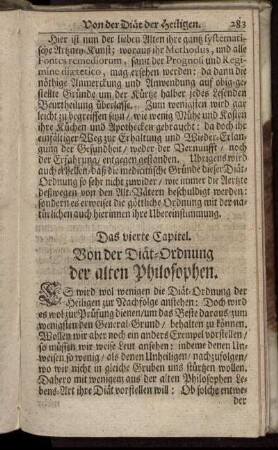 Von der Diät der Heiligen. 283
Hier ist nun der lieben Alten ihre gantz systemati-
sche Artzney-Kunst; woraus ihr Methodus, und alle
Fontes remediorum, samt der Prognosi und Regi-
mine diætetico, mag ersehen werden: da dann die
nöthige Anmerckung und Anwendung auf obig-ge-
stellte Gründe um der Kürtze halber jedes Lesenden
Beurtheilung überlasse. Zum wenigsten wird gar
leicht zu begreiffen seyn, wie wenig Mühe und Kosten
ihre Küchen und Apothecken gebraucht: da doch ihr
einfältiger Weg zur Erhaltung und Wieder-Erlan-
gung der Gesundheit, weder der Vernunfft, noch
der Erfahrung, entgegen gestanden. Ubrigens wird
auch erhellen, daß die medicinische Gründe dieser Diät-
Ordnung so sehr nicht zuwider, wie immer die Aertzte
deswegen von den Alt-Vätern beschuldigt worden:
sondern es erweiset die göttliche Ordnung mit der na-
türlichen auch hierinnen ihre Ubereinstimmung.
Das vierte Capitel.
Von der Diät-Ordnung
der alten Philosophen.
ES wird wol wenigen die Diät-Ordnung der
Heiligen zur Nachfolge anstehen: Doch wird
es wol zur Prüfung dienen, um das Beste daraus, zum
wenigsten den General-Grund, behalten zu können.
Wollen wir aber noch ein anders Exempel vorstellen,
so müssen wir weise Leut ansehen: indeme denen Un-
weisen so wenig, als denen Unheiligen, nachzufolgen,
wo wir nicht in gleiche Gruben uns stürtzen wollen.
Dahero mit wenigem aus der alten Philosophen Le-
bens-Art ihre Diät vorstellen will: Ob solche entwe-
der